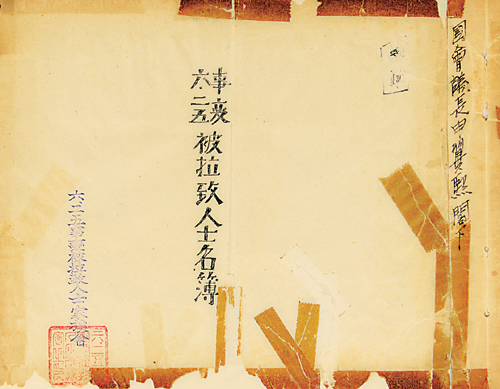 国會議長申翼熙閣下
六二五事變被拉致人士名簿
六二五事變被拉致人士家族會